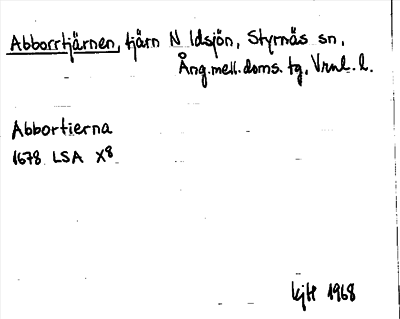 Abborrtjärnen, tjärn N Idsjön, Styrnäs sn,
Ång.mell.doms.tg, Vrnl.l.
Abbortierna
1678 LSA X8
1968